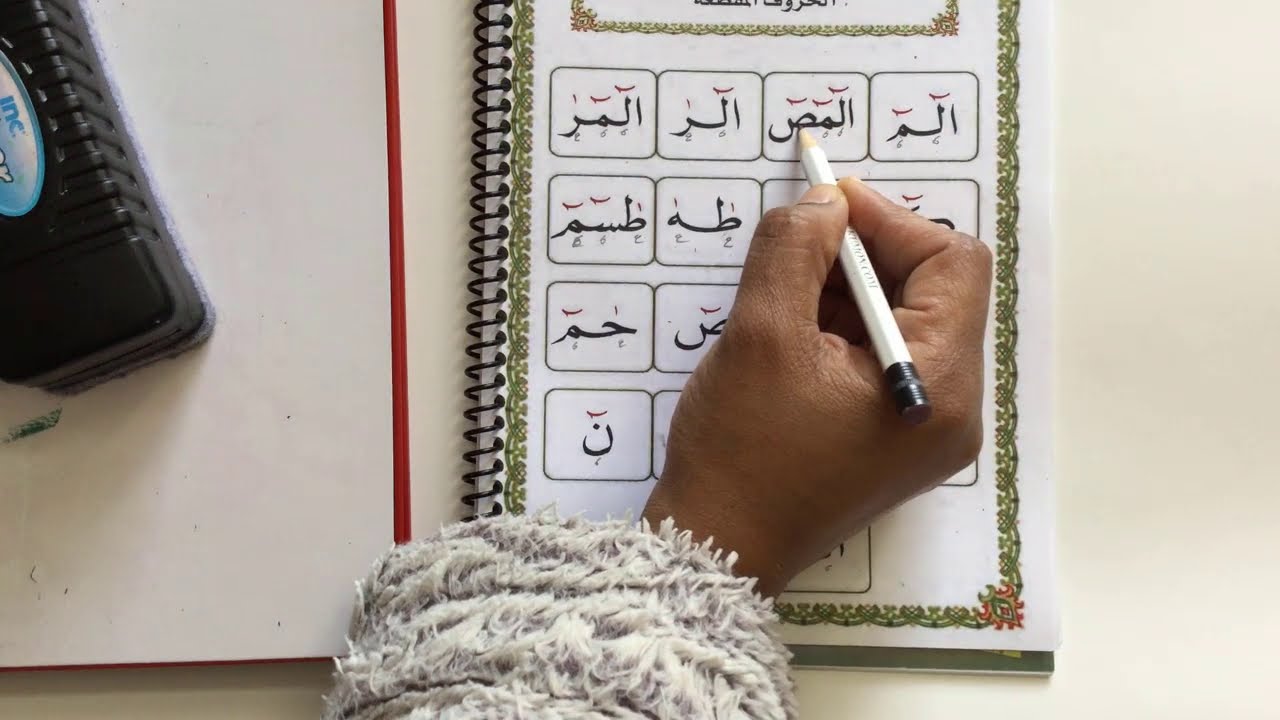 الحروف المقطعة
الٓمٓ الٓمٓصٓ الٓرٰ الٓمٓرٰ
طٰهٰ طٰسٓمٓ
صٓ حٰمٓ
نٓ